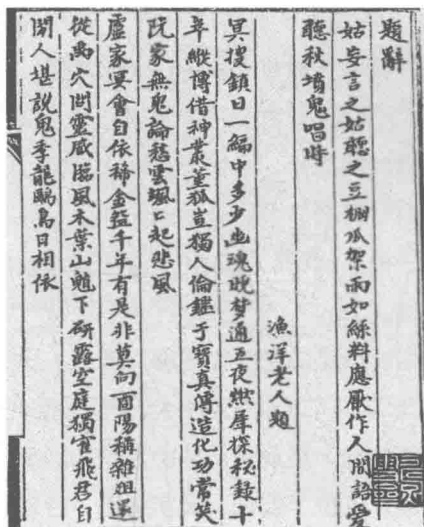 題辭
姑妄言之姑聽之豆棚瓜架雨如絲料應厭作人間語愛
聽秋墳鬼唱時
漁洋老人題
冥搜鎮日一編中多少幽魂曉梦通五夜燃犀探秘錄十
年縱博借神叢董狐豈獨人倫鑑于寶真傳造化功常笑
阮家無鬼論愁雲颯〻起悲風
盧家冥會自依稀金盌千年有是非莫向酉陽稱雜俎還
從禹穴問靈威臨風木葉山魈下研露空庭獨寉飛君自
閒人堪說鬼季龍鷗鳥日相依